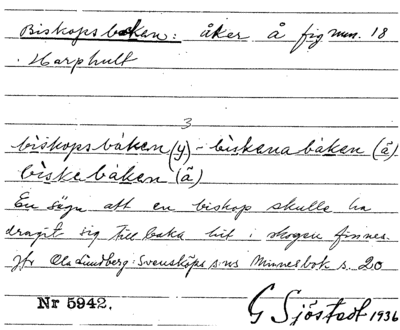 Biskopsbokan: åker å fig num. 18
Harphult
3
biskopsbåkan (y) - biskana båkan (ä)
biske båkan (ä)
En sägn att en biskop skulle ha
dragit sig tillbaka hit i skogen finnes.
Jfr Ola Lundberg: Svensköps s:ns Minnesbok s. 20
Nr 5942. G Sjöstedt 1936